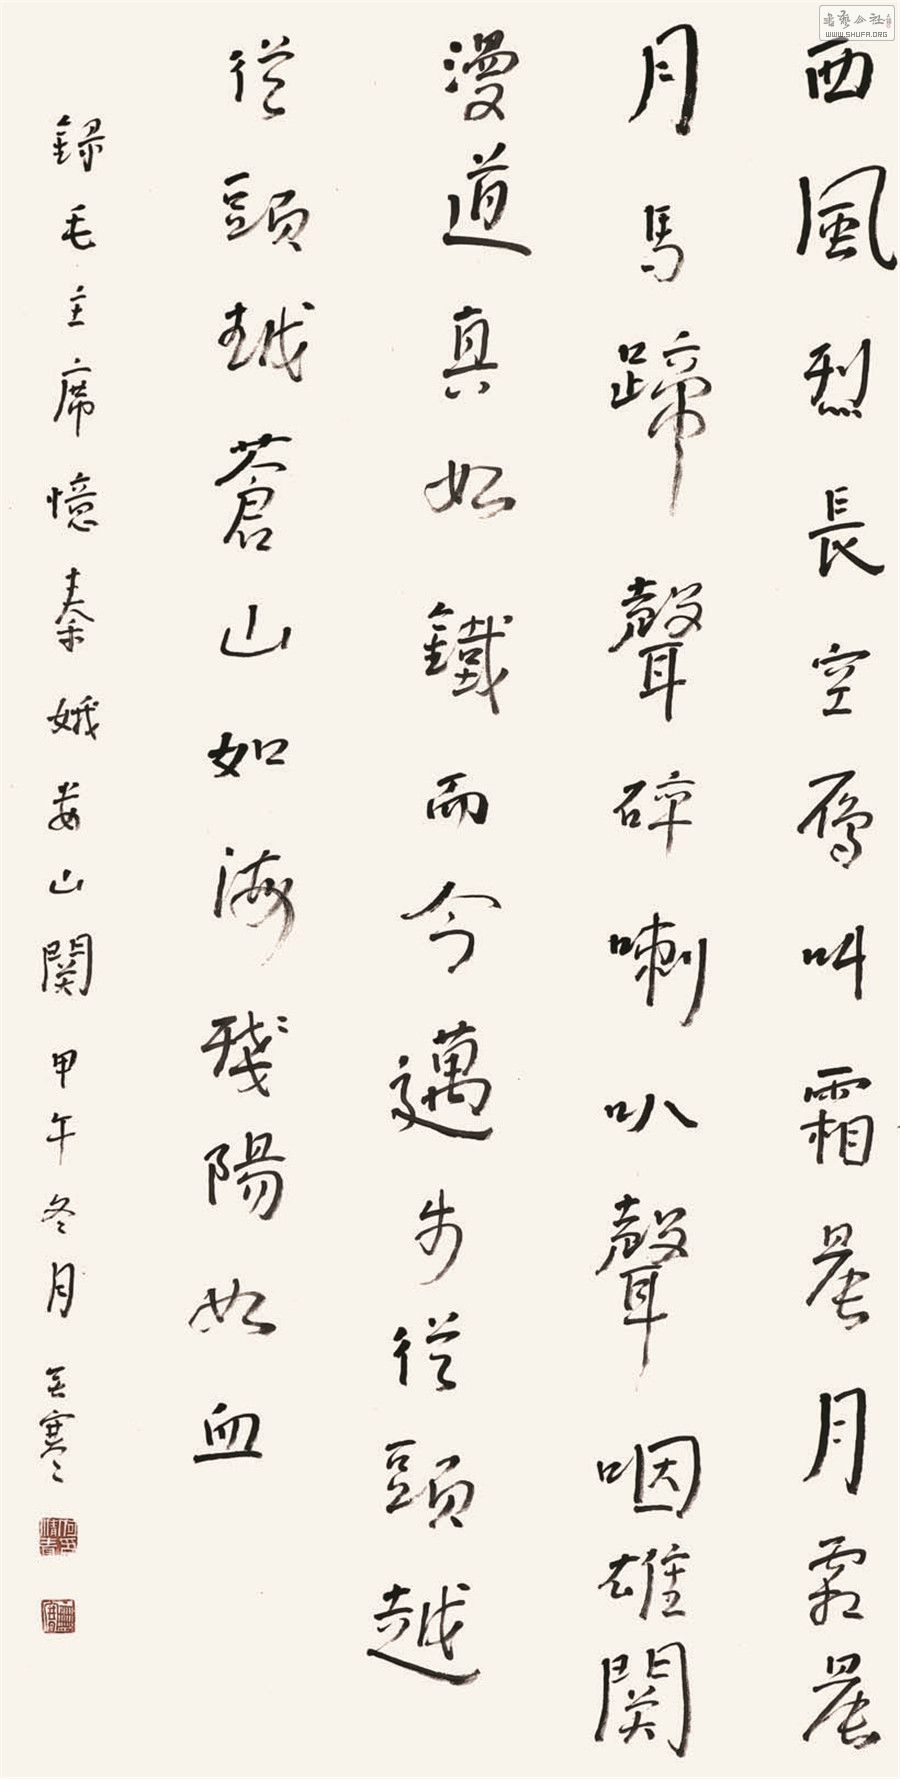 西風烈長空鴈叫霜晨月霜晨
月馬蹄聲碎喇叭聲咽雄關
漫道真如鐵而今邁步從頭越
從頭越蒼山如海殘陽如血
録毛主席憶秦娥婁山関 甲午冬月 寒
WWW.SHUFA.ORG